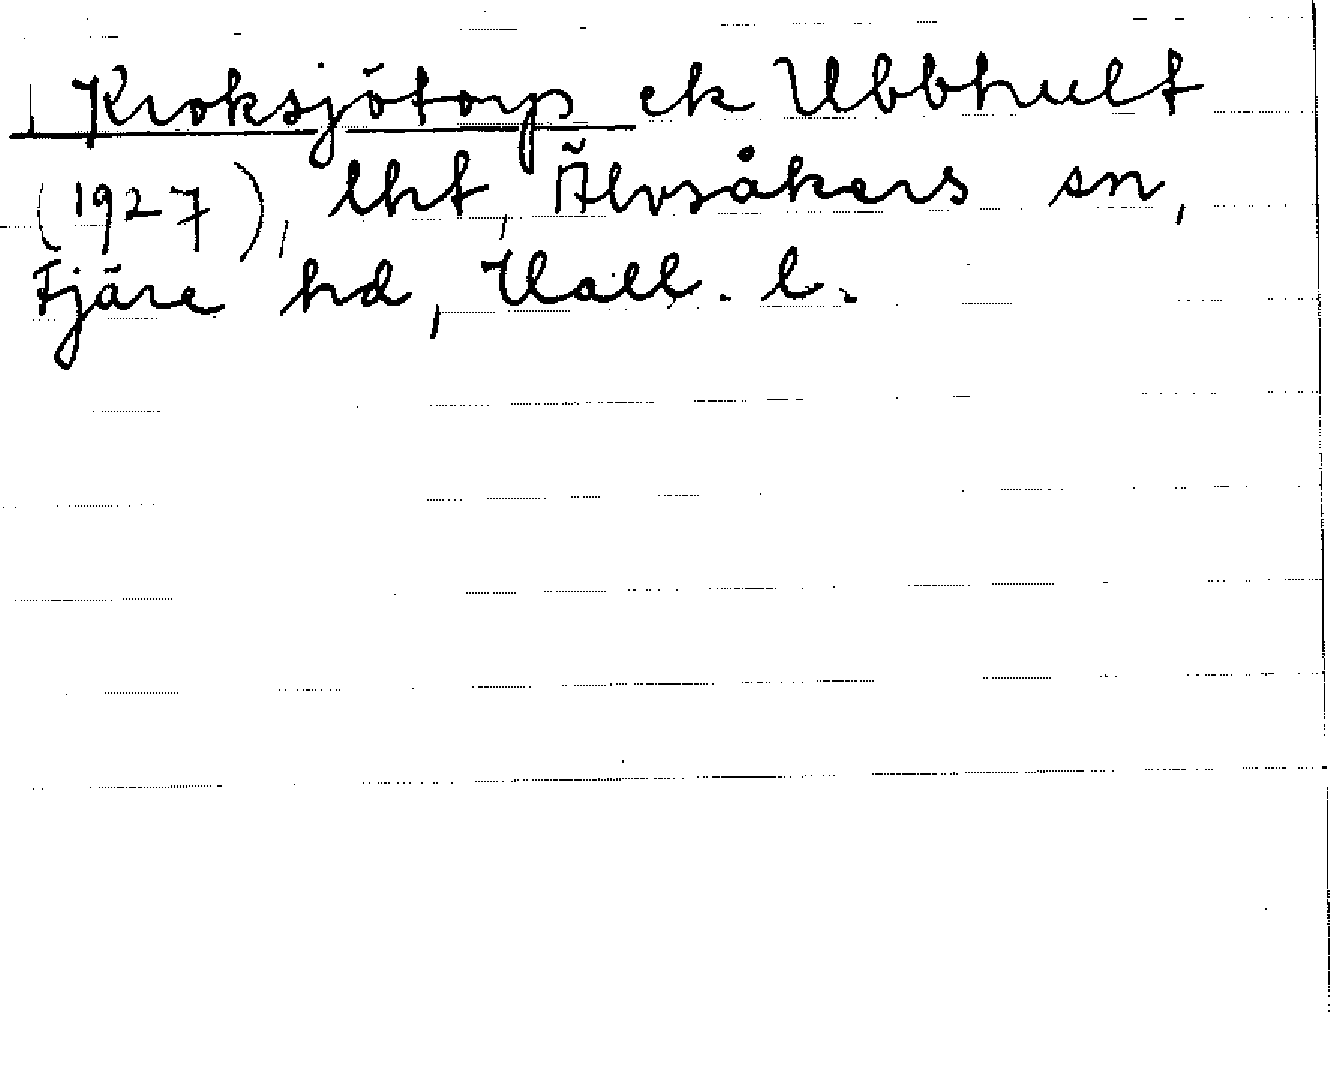 Kroksjötorp ek Ubbhult
(1927), lht, Älvsåkers sn,
Fjäre hd, Hall. l.